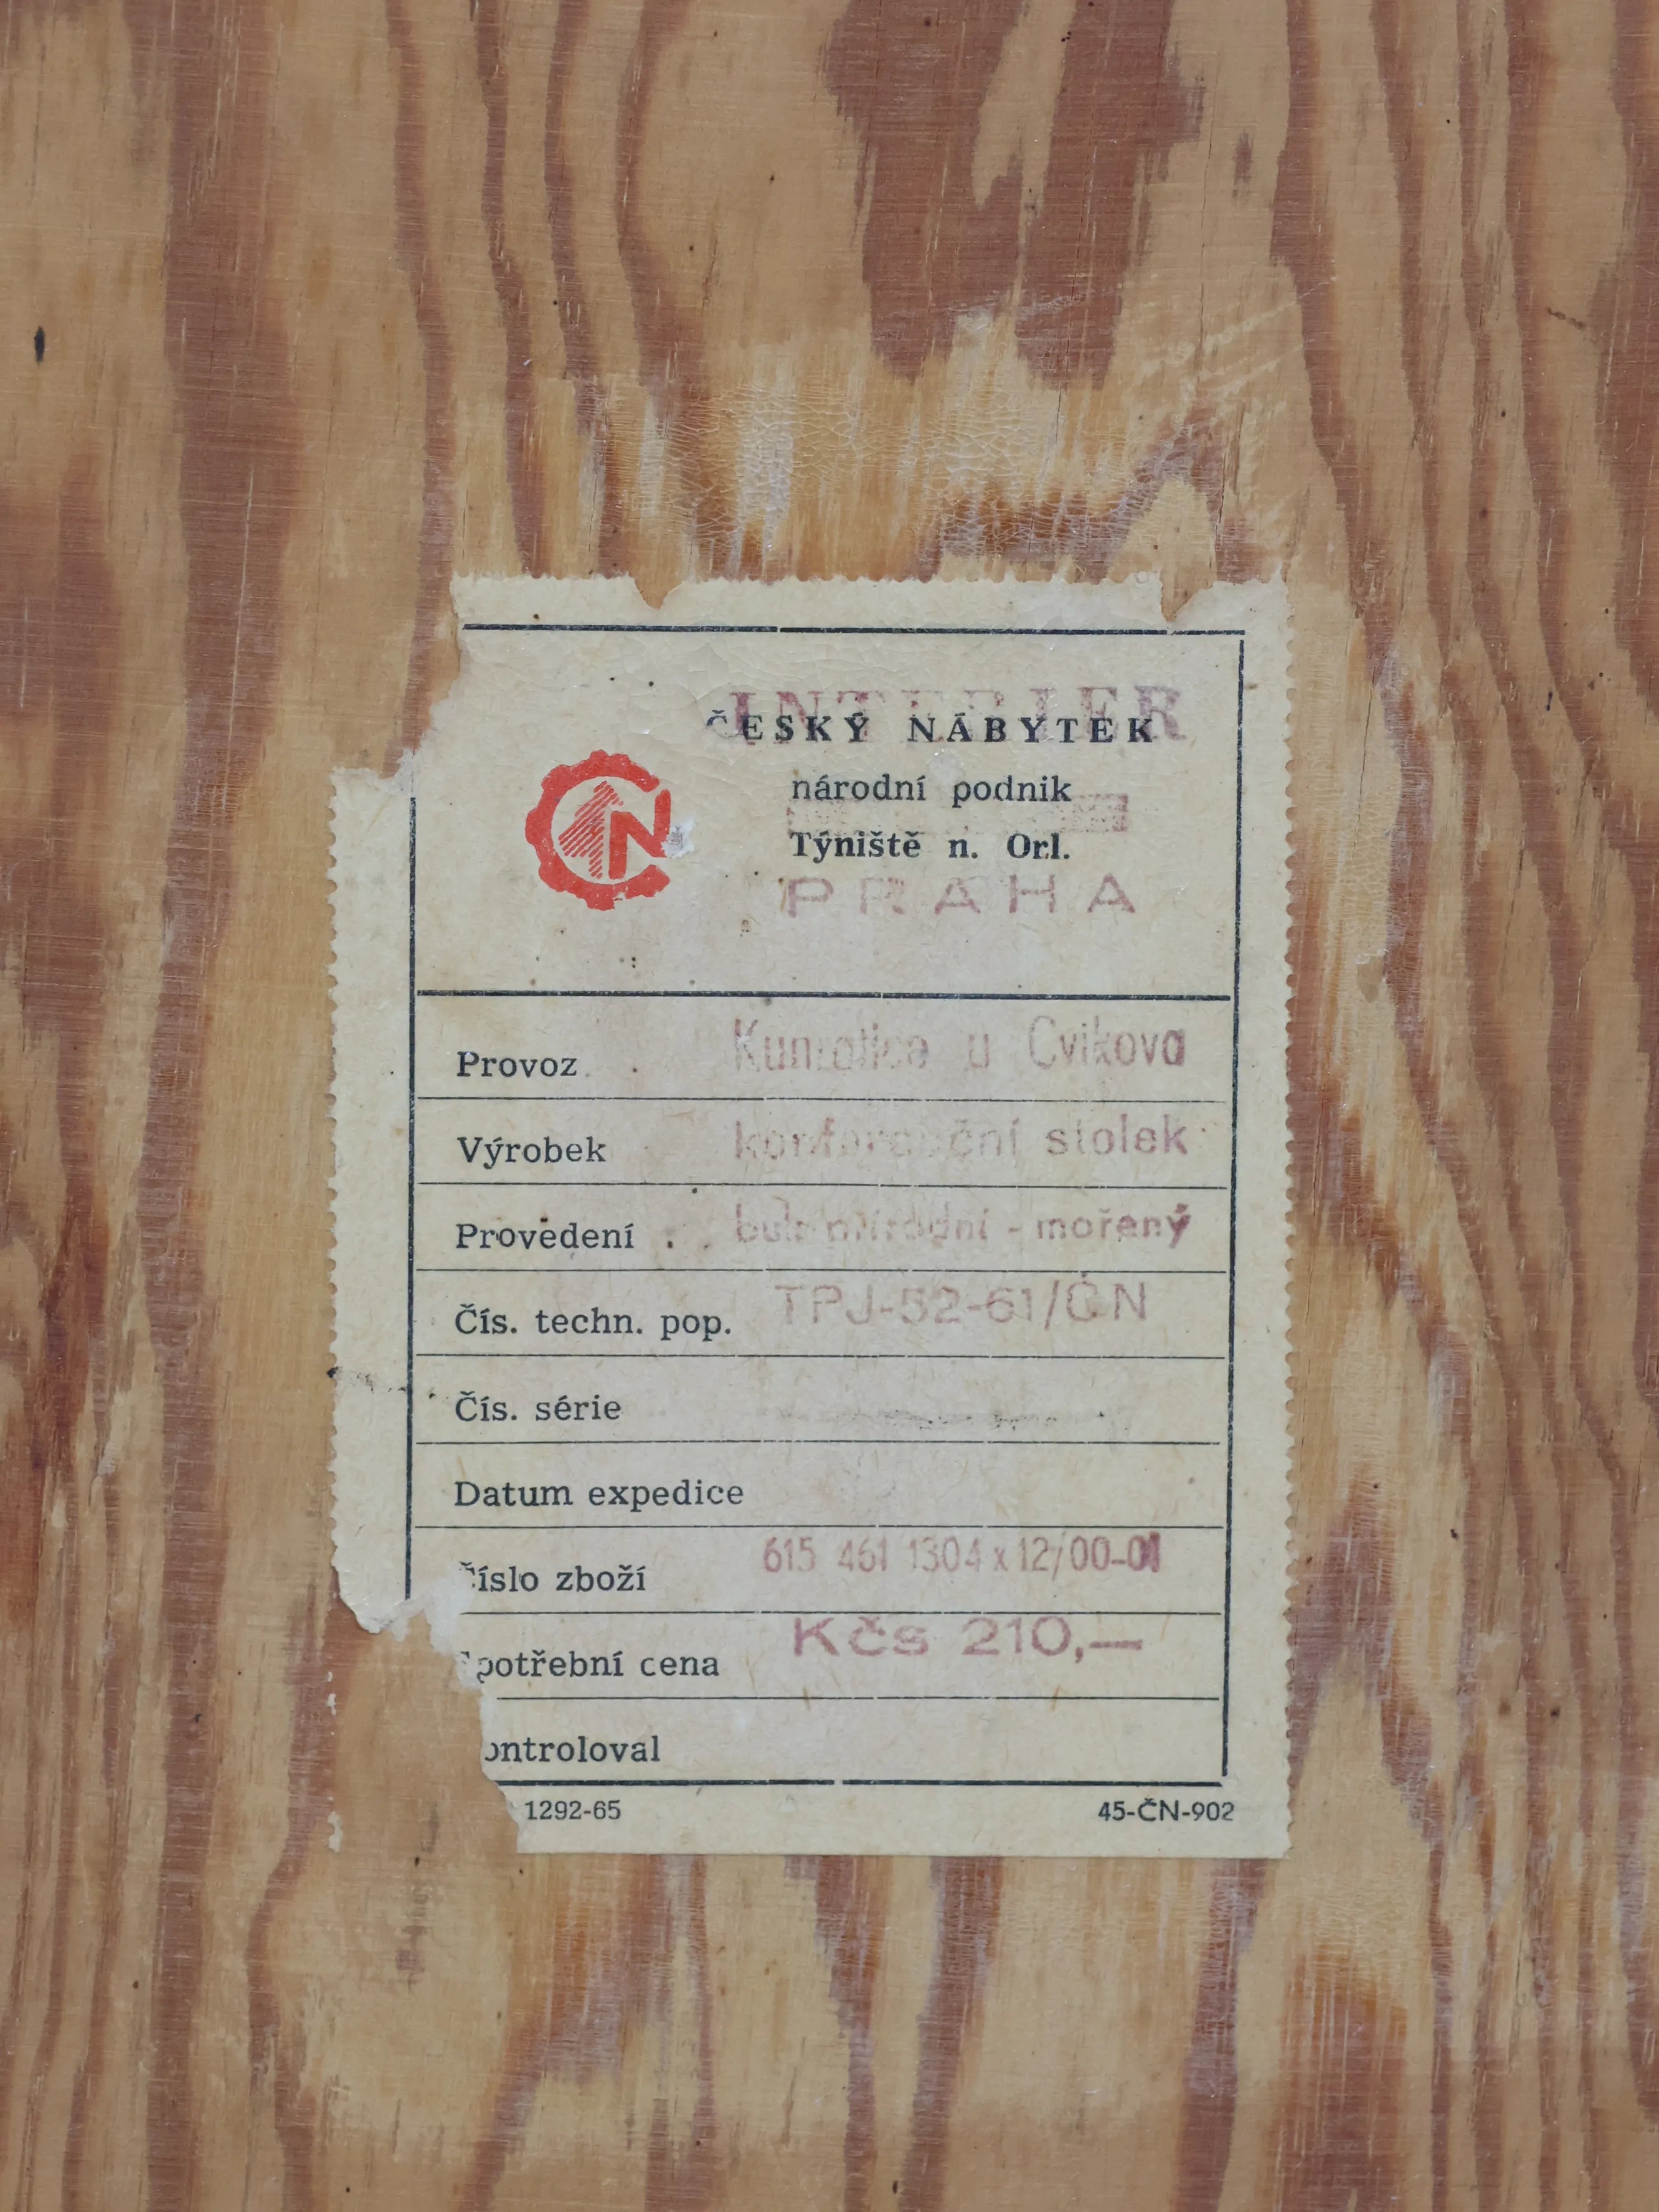 INTERIER
ČESKÝ NÁBYTEK
národní podnik
Týniště n. Orl.
PRAHA
ČN
Provoz Kunratice u Cvikova
Výrobek konferenční stolek
Provedení buk přírodní - mořený
Čís. techn. pop. TPJ-52-61/ČN
Čís. série
Datum expedice
Číslo zboží 615 461 1304 x 12/00-01
potřební cena Kčs 210,—
ontroloval
1292-65 45-ČN-902